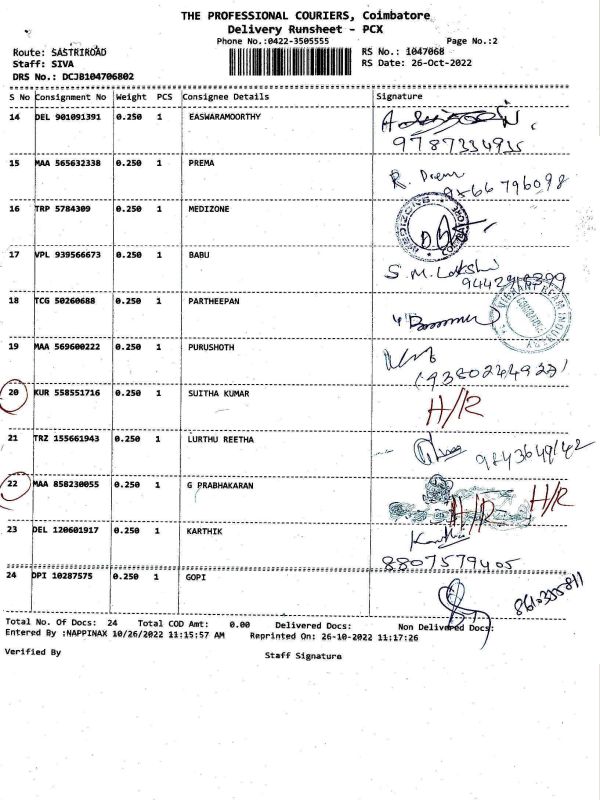 THE PROFESSIONAL COURIERS, Coimbatore
Delivery Runsheet - PCX
Phone No.:0422-3505555 Page No.:2
Route: SASTRIROAD RS No.: 1047068
Staff: SIVA RS Date: 26-Oct-2022
DRS No.: DCJB104706802
S No Consignment No Weight PCS Consignee Details Signature
14 DEL 901091391 0.250 1 EASWARAMOORTHY
9787334935
15 MAA 565632338 0.250 1 PREMA
R. Prem
9566796098
16 TRP 5784309 0.250 1 MEDIZONE
MEDIZONE
17 VPL 939566673 0.250 1 BABU
S.M. Lakshmi
18 TCG 50260688 0.250 1 PARTHEEPAN
19 MAA 569600222 0.250 1 PURUSHOTH
(9380244927)
20 KUR 558551716 0.250 1 SUITHA KUMAR H/R
21 TRZ 155661943 0.250 1 LURTHU REETHA
9843649142
22 MAA 858230055 0.250 1 G PRABHAKARAN H/R H/R
23 DEL 120601917 0.250 1 KARTHIK
8807579405
24 DPI 10287575 0.250 1 GOPI
Total No. Of Docs: 24 Total COD Amt: 0.00 Delivered Docs: Non Delivered Docs:
Entered By :NAPPINAX 10/26/2022 11:15:57 AM Reprinted On: 26-10-2022 11:17:26
Verified By Staff Signature